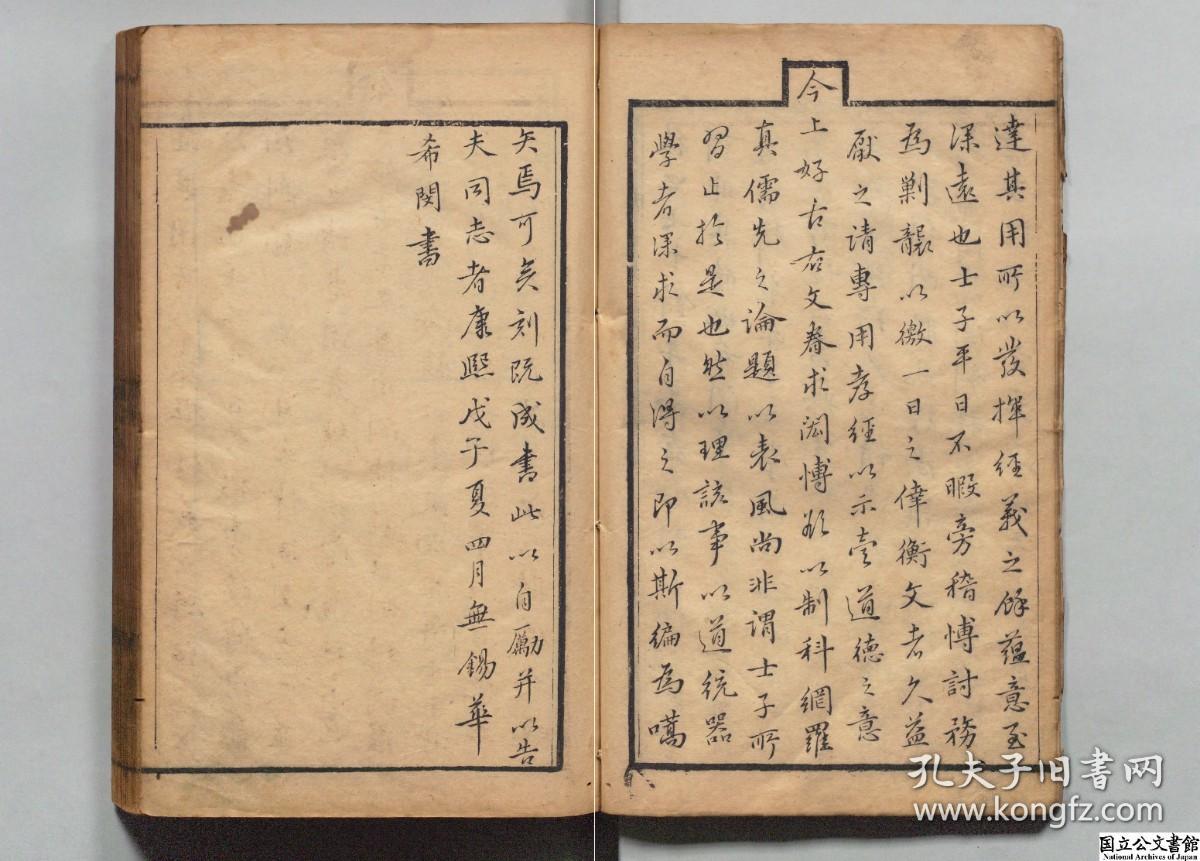 達其用所以發揮經義之餘蘊意至
深遠也士子平日不暇旁稽博討務
為剿襲以徼一日之倖衡文者久益
厭之請專用孝經以示壹道德之意
今
上好古右文眷求閎博欲以制科網羅
真儒先之論題以表風尚非謂士子所
習止於是也然以理該事以道統器
學者深求而自得之即以斯編為嚆
矢焉可矣刻既成書此以自勵并以告
夫同志者康熙戊子夏四月無錫華
希閔書
孔夫子旧书网
www.kongfz.com
国立公文書館
National Archives of Japan